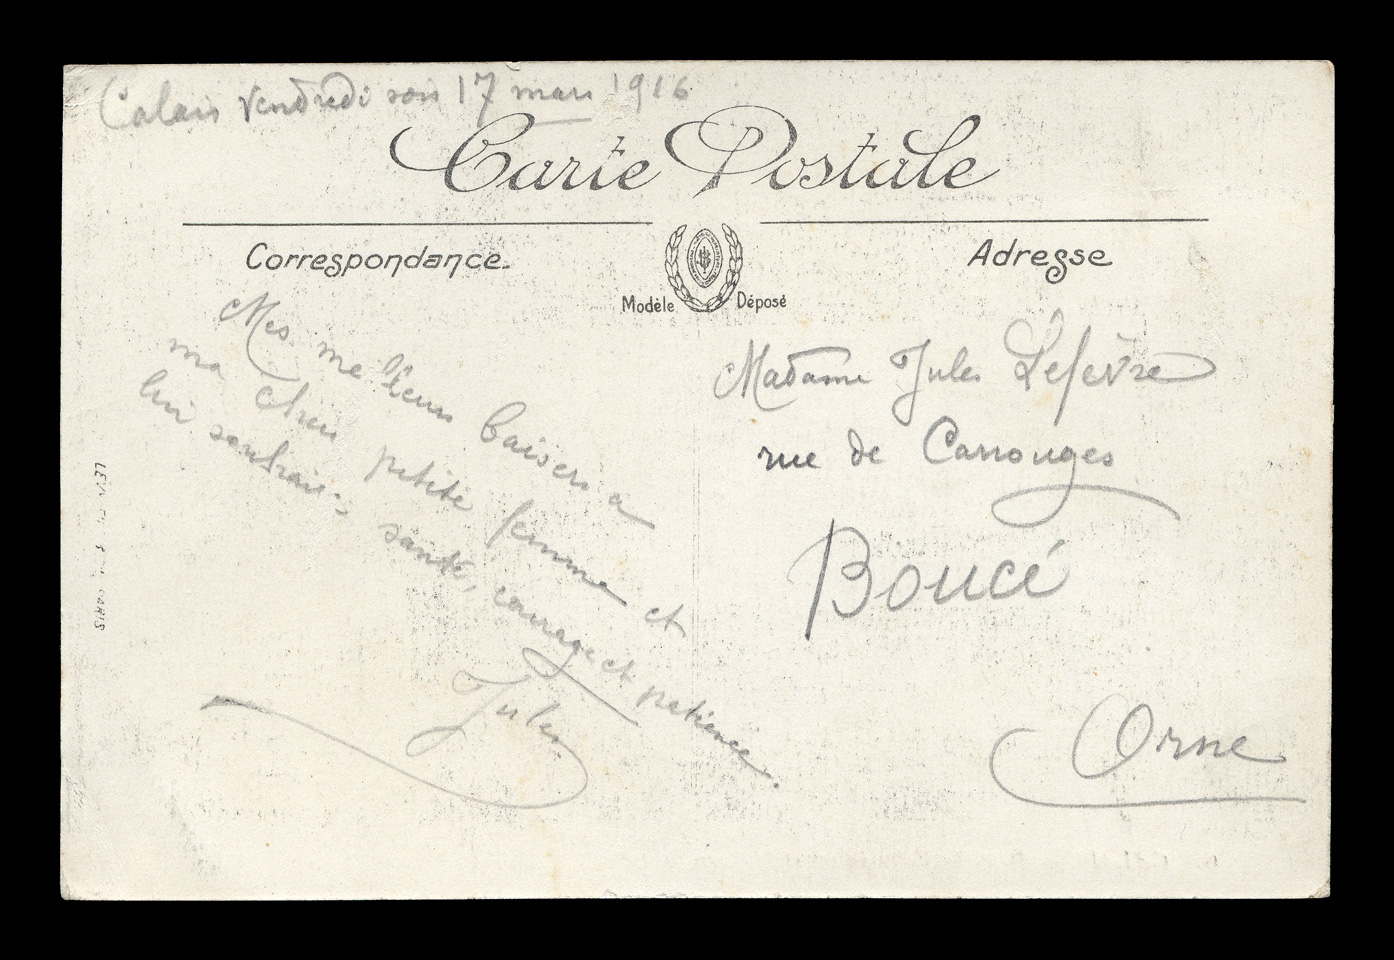 Calais vendredi soir 17 mars 1916
Carte Postale
Correspondance
Adresse
Modèle Déposé
Mes meilleurs baisers a
ma chere petite femme et
lui souhrais santé, courage et patience.
Jules
Madame Jules Lefèvre
rue de Carrouges
Boucé
Orne
PARIS